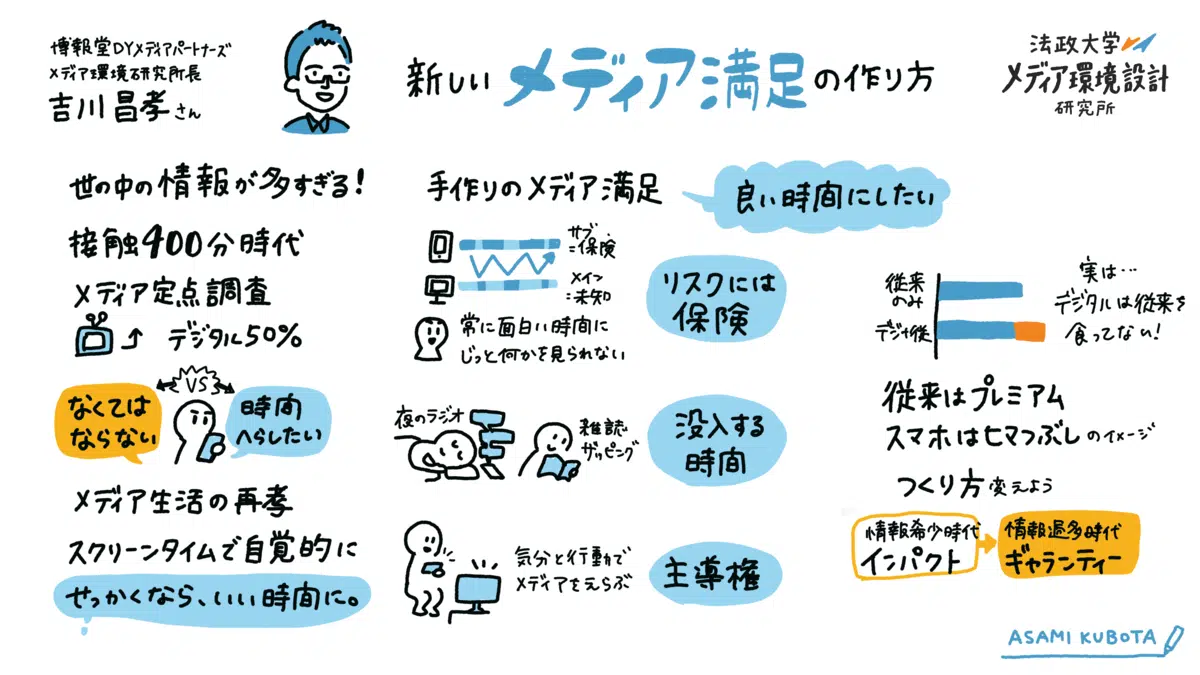 博報堂DYメディアパートナーズ
メディア環境研究所長
吉川昌孝さん
新しいメディア満足の作り方
法政大学
メディア環境設計
研究所
世の中の情報が多すぎる！
接触400分時代
メディア定点調査
デジタル50%
なくては
ならない
VS
時間
へらしたい
メディア生活の再考
スクリーンタイムで自覚的に
せっかくなら、いい時間に。
手作りのメディア満足
良い時間にしたい
サブ
=保険
メイン
=未知
リスクには
保険
常に面白い時間に
じっと何かを見られない
夜のラジオ
雑誌
ザッピング
没入する
時間
気分と行動で
メディアをえらぶ
主導権
従来
のみ
デジタル後
実は…
デジタルは従来を
食ってない！
従来はプレミアム
スマホはヒマつぶしのイメージ
つくり方変えよう
情報希少時代
インパクト
情報過多時代
ギャランティー
ASAMI KUBOTA